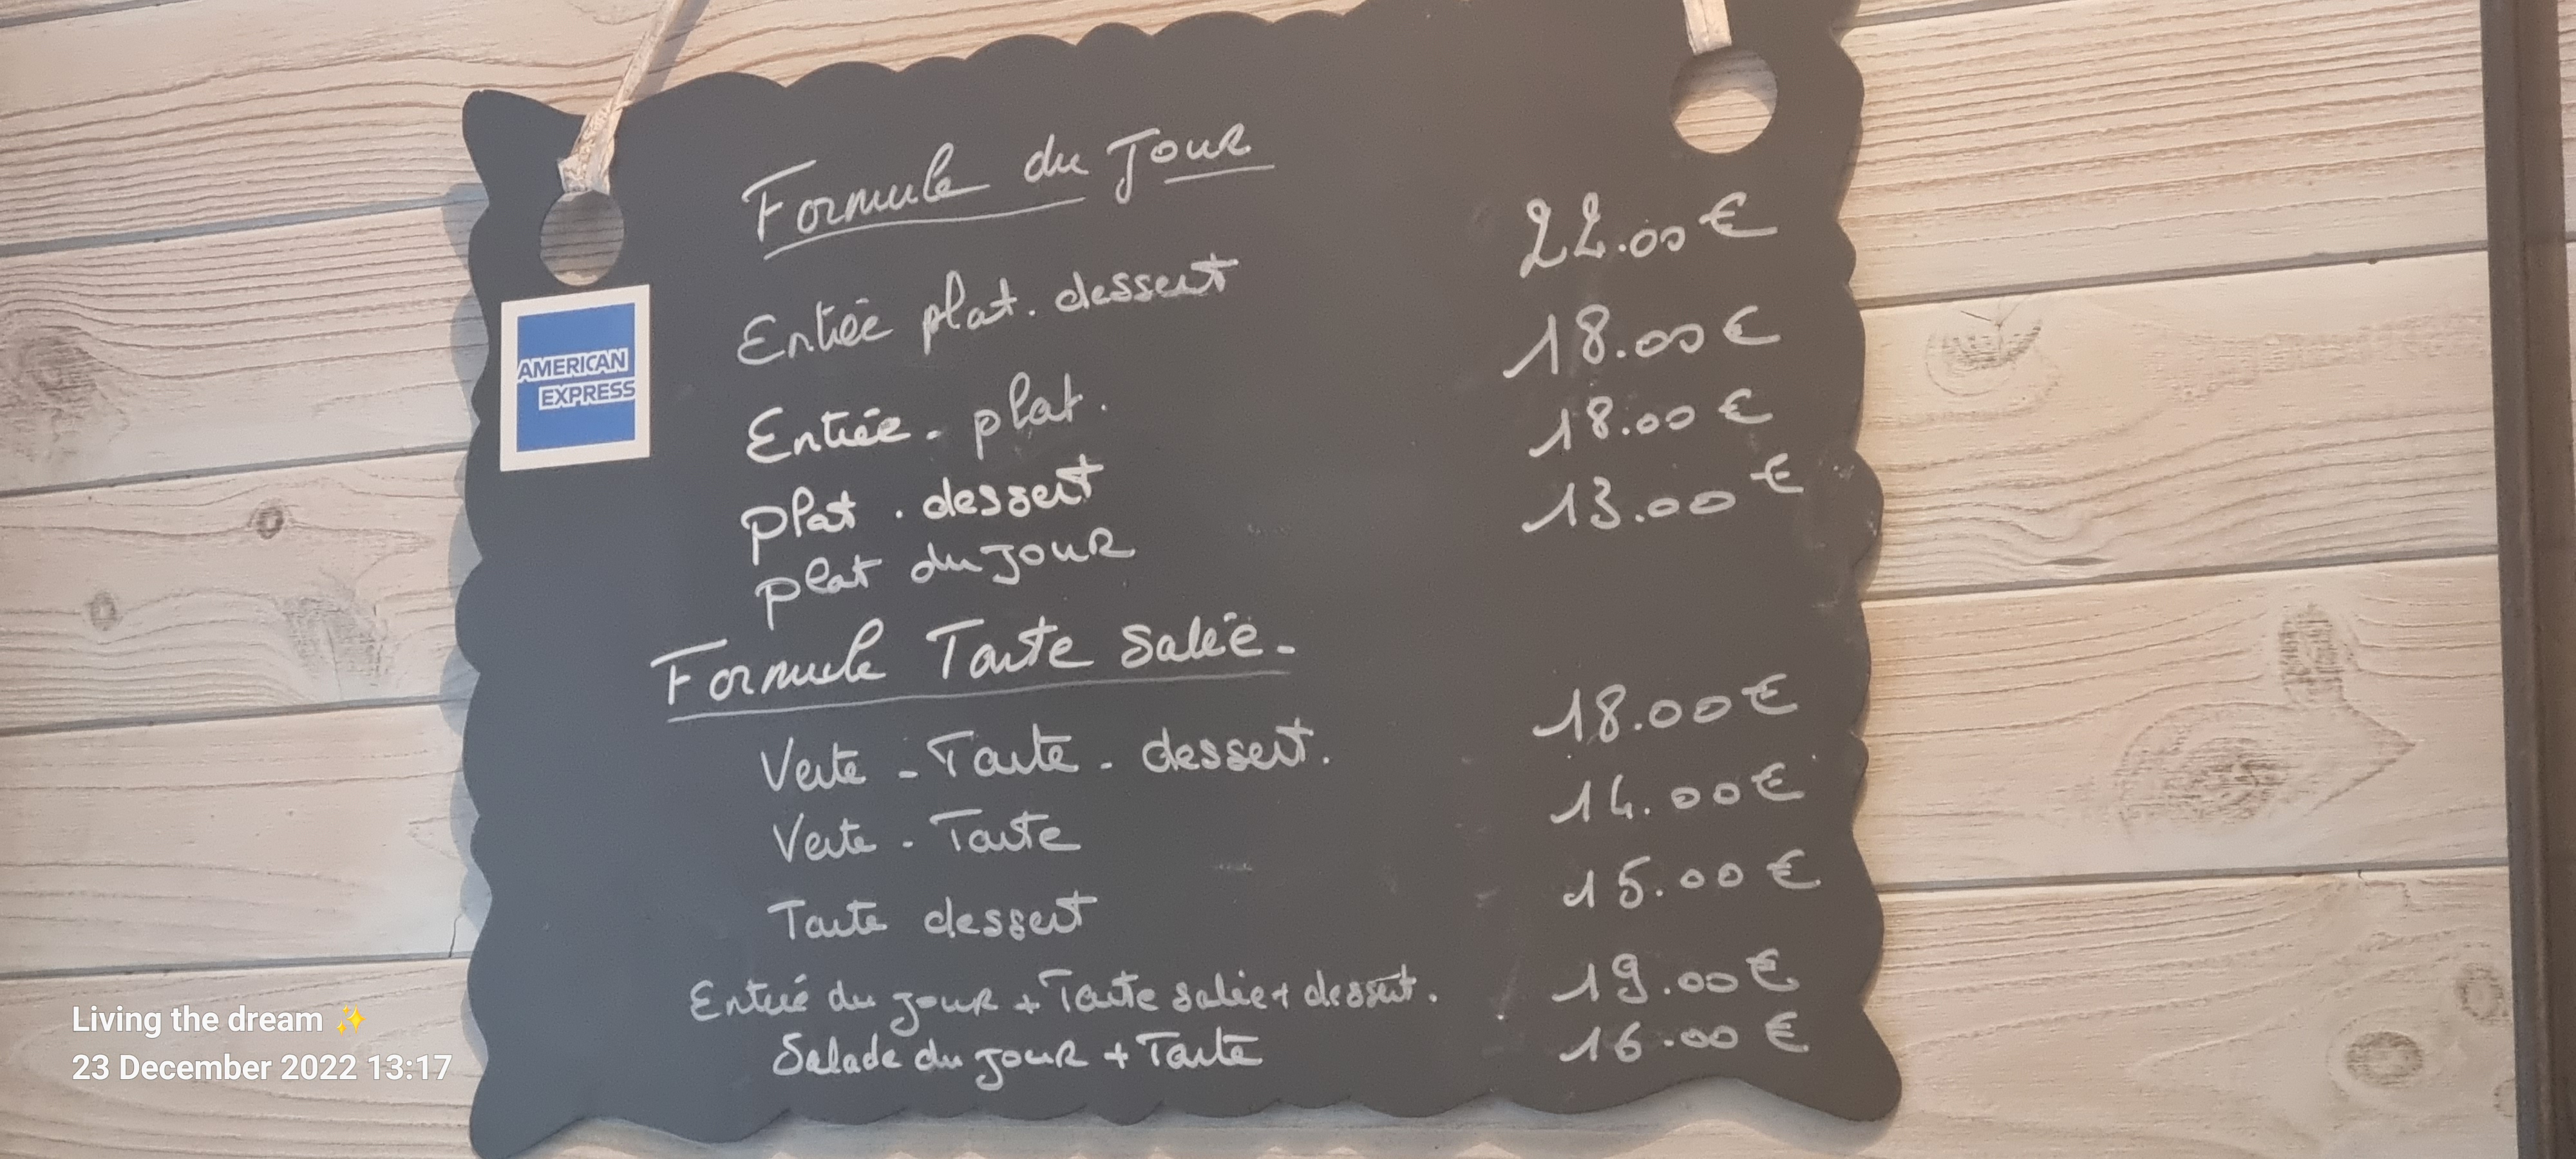 Formule du Jour
Entrée plat. dessert 22.00€
Entrée - plat. 18.00€
plat . dessert 18.00€
plat du jour 13.00€
AMERICAN
EXPRESS
Formule Tarte Salée -
Verte - Tarte - dessert. 18.00€
Verte - Tarte 14.00€
Tarte dessert 15.00€
Entrée du jour + Tarte salée + dessert. 19.00€
Salade du jour + Tarte 16.00€
Living the dream ✨
23 December 2022 13:17